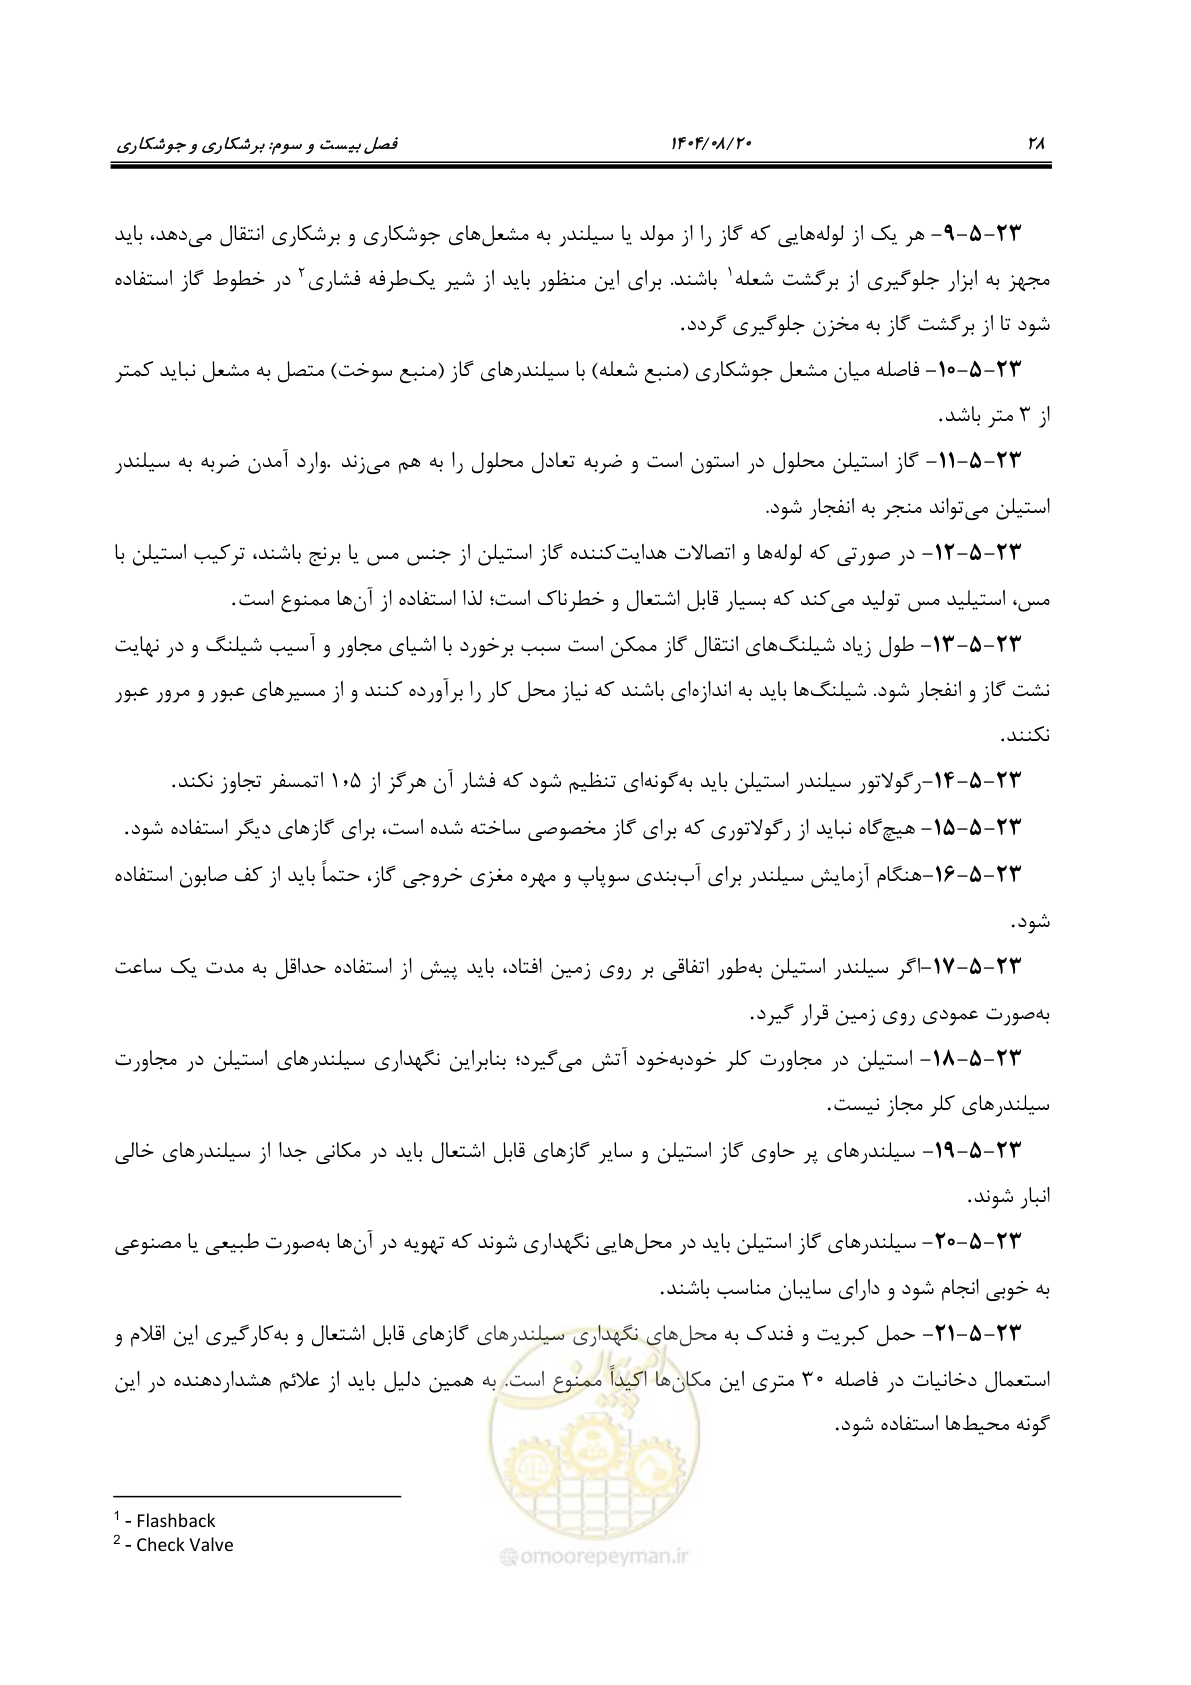 ۲۸ ۱۴۰۴/۰۸/۲۰ فصل بیست و سوم: برشکاری و جوشکاری
۲۳-۵-۹- هر یک از لوله‌هایی که گاز را از مولد یا سیلندر به مشعل‌های جوشکاری و برشکاری انتقال می‌دهد، باید
مجهز به ابزار جلوگیری از برگشت شعله۱ باشند. برای این منظور باید از شیر یک‌طرفه فشاری۲ در خطوط گاز استفاده
شود تا از برگشت گاز به مخزن جلوگیری گردد.
۲۳-۵-۱۰- فاصله میان مشعل جوشکاری (منبع شعله) با سیلندرهای گاز (منبع سوخت) متصل به مشعل نباید کمتر
از ۳ متر باشد.
۲۳-۵-۱۱- گاز استیلن محلول در استون است و ضربه تعادل محلول را به هم می‌زند .وارد آمدن ضربه به سیلندر
استیلن می‌تواند منجر به انفجار شود.
۲۳-۵-۱۲- در صورتی که لوله‌ها و اتصالات هدایت‌کننده گاز استیلن از جنس مس یا برنج باشند، ترکیب استیلن با
مس، استیلید مس تولید می‌کند که بسیار قابل اشتعال و خطرناک است؛ لذا استفاده از آن‌ها ممنوع است.
۲۳-۵-۱۳- طول زیاد شیلنگ‌های انتقال گاز ممکن است سبب برخورد با اشیای مجاور و آسیب شیلنگ و در نهایت
نشت گاز و انفجار شود. شیلنگ‌ها باید به اندازه‌ای باشند که نیاز محل کار را برآورده کنند و از مسیرهای عبور و مرور عبور
نکنند.
۲۳-۵-۱۴-رگولاتور سیلندر استیلن باید به‌گونه‌ای تنظیم شود که فشار آن هرگز از ۱٫۰۵ اتمسفر تجاوز نکند.
۲۳-۵-۱۵- هیچ‌گاه نباید از رگولاتوری که برای گاز مخصوصی ساخته شده است، برای گازهای دیگر استفاده شود.
۲۳-۵-۱۶-هنگام آزمایش سیلندر برای آب‌بندی سوپاپ و مهره مغزی خروجی گاز، حتماً باید از کف صابون استفاده
شود.
۲۳-۵-۱۷-اگر سیلندر استیلن به‌طور اتفاقی بر روی زمین افتاد، باید پیش از استفاده حداقل به مدت یک ساعت
به‌صورت عمودی روی زمین قرار گیرد.
۲۳-۵-۱۸- استیلن در مجاورت کلر خودبه‌خود آتش می‌گیرد؛ بنابراین نگهداری سیلندرهای استیلن در مجاورت
سیلندرهای کلر مجاز نیست.
۲۳-۵-۱۹- سیلندرهای پر حاوی گاز استیلن و سایر گازهای قابل اشتعال باید در مکانی جدا از سیلندرهای خالی
انبار شوند.
۲۳-۵-۲۰- سیلندرهای گاز استیلن باید در محل‌هایی نگهداری شوند که تهویه در آن‌ها به‌صورت طبیعی یا مصنوعی
به خوبی انجام شود و دارای سایبان مناسب باشند.
۲۳-۵-۲۱- حمل کبریت و فندک به محل‌های نگهداری سیلندرهای گازهای قابل اشتعال و به‌کارگیری این اقلام و
استعمال دخانیات در فاصله ۳۰ متری این مکان‌ها اکیداً ممنوع است. به همین دلیل باید از علائم هشداردهنده در این
گونه محیط‌ها استفاده شود.
امور پیمان
1 - Flashback
2 - Check Valve
@omoorepeyman.ir